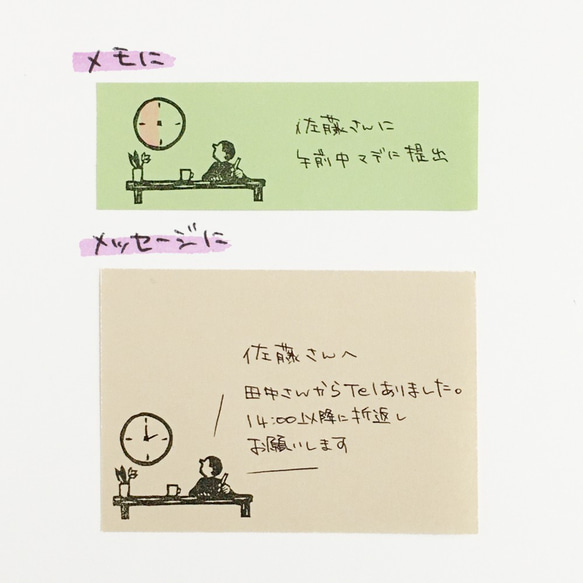 メモに
佐藤さんに
午前中マデに提出
メッセージに
佐藤さんへ
田中さんからTelありました。
14:00以降に折返し
お願いします